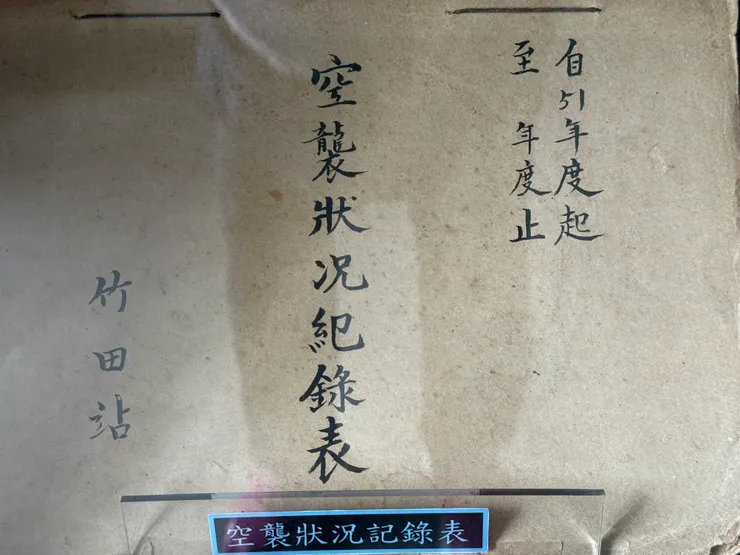 自51年度起
至 年度止
空襲狀況紀錄表
竹田站
空襲狀況記錄表